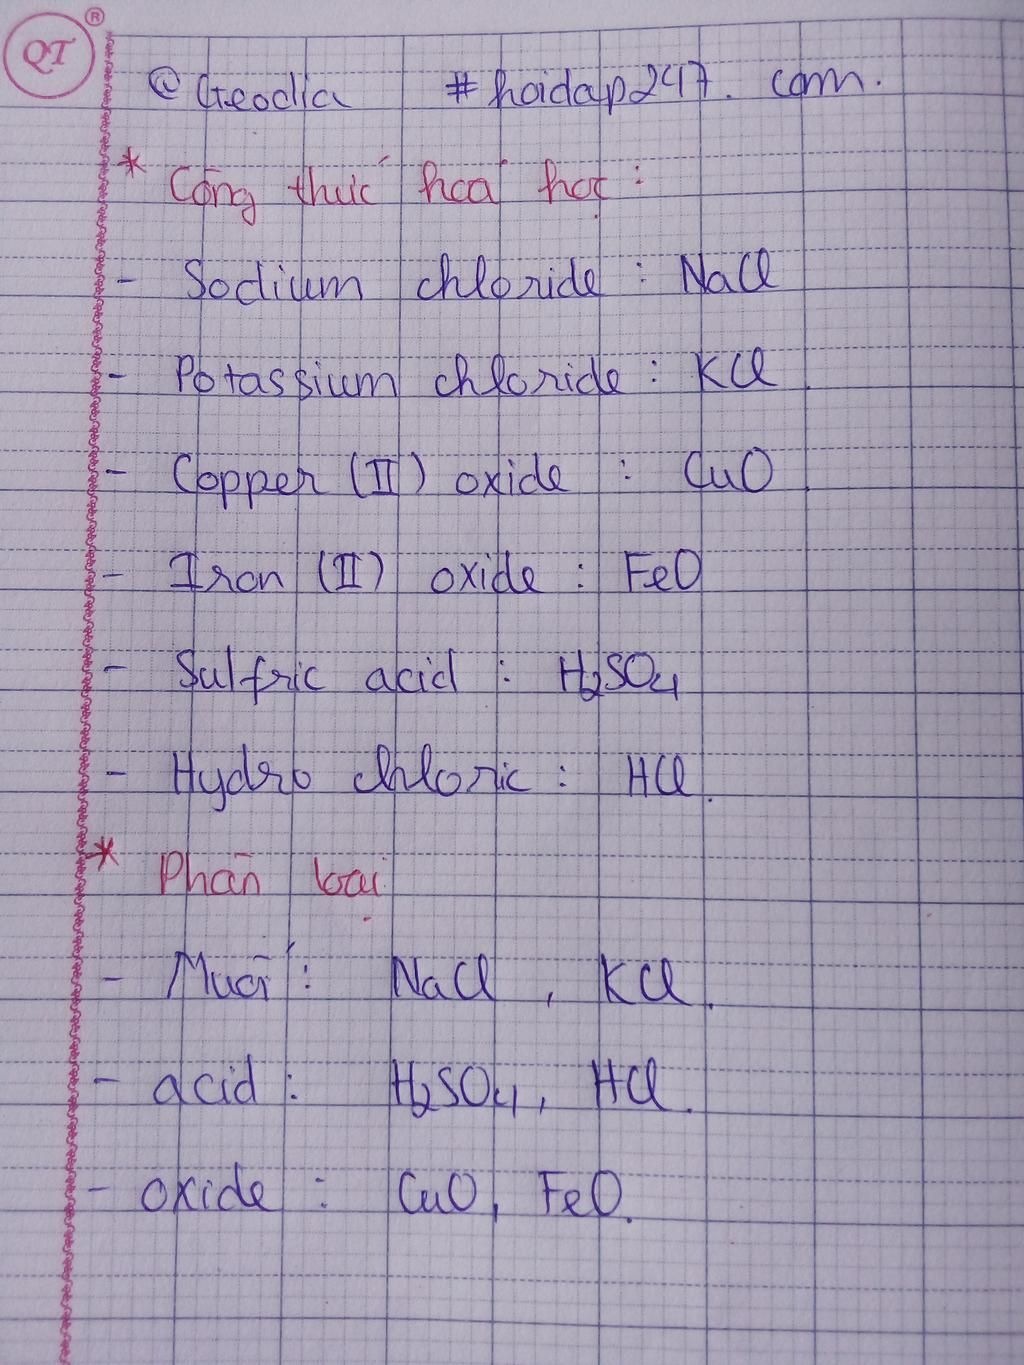 QT ®
@Geodia #hoidap247.com.
* Công thức hoá học:
- Sodium chloride : NaCl
- Potassium chloride : KCl
- Copper (II) oxide : CuO
- Iron (II) oxide : FeO
- Sulfric acid : H₂SO₄
- Hydro chloric : HCl.
* Phân loại
- Muối : NaCl , KCl.
- acid : H₂SO₄, HCl.
- oxide : CuO, FeO.